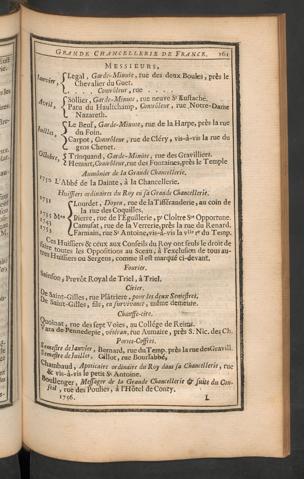 GRANDE CHANCELLERIE DE FRANCE. 161
MESSIEURS,
Janvier, Legal, Garde-Minute, rue des deux Boules, près le
Chevalier du Guet.
. . . . Conrôleur, rue . . . .
Avril, Sollier, Garde-Minute, rue neuve St Eustache.
Patu du Haultchamp, Conrôleur, rue Notre-Dame
Nazareth.
Juillet, Le Beuf, Garde-Minute, rue de la Harpe, près la rue
du Foin.
Carpot, Conrôleur, rue de Cléry, vis-à-vis la rue du
gros Chenet.
Octobre, Trinquand, Garde-Minute, rue des Gravilliers.
Hennet, Conrôleur, rue des Fontaines, près le Temple
Aumônier de la Grande Chancellerie.
1750 L'Abbé de la Dainte, à la Chancellerie.
Huissiers ordinaires du Roy en sa Grande Chancellerie.
Lourdet, Doyen, rue de la Tisseranderie, au coin de
la rue des Coquilles.
Pierre, rue de l'Eguillerie, pr Cloître Ste Opportune.
Camusat, rue de la Verrerie, près la rue du Renard.
Farmain, rue St Antoine vis-à-vis la du Temp.
Ces Huissiers & ceux aux Conseils du Roy ont seuls le droit de
faire toutes les Oppositions au Sceau, à l'exclusion de tous au-
tres Huissiers ou Sergens, comme il est marqué ci-devant.
Fourier.
Sainson, Prevôt Royal de Triel, à Triel.
Cirier.
De Saint-Gilles, rue Plâtriere, pour les deux Semestres.
De Saint-Gilles, fils, en survivance, même demeure.
Chauffe-cire.
Quoinat, rue des sept Voies, au Collége de Reims.
Yara de Pennedepie, vétéran, rue Aumaire, près S. Nic. des Ch.
Portes-Coffres.
Semestre de Janvier, Bernard, rue du Temp. près la rue des Gravill.
Semestre de Juillet, Gillot, rue Boutsabbé,
Chambaud, Apoticaire ordinaire du Roy dans sa Chancellerie, rue
& vis-à-vis le petit St Antoine.
Boullenger, Messager de la Grande Chancellerie & suite du Con-
seil, rue des Poulies, à l'Hôtel de Conty.
1756. L